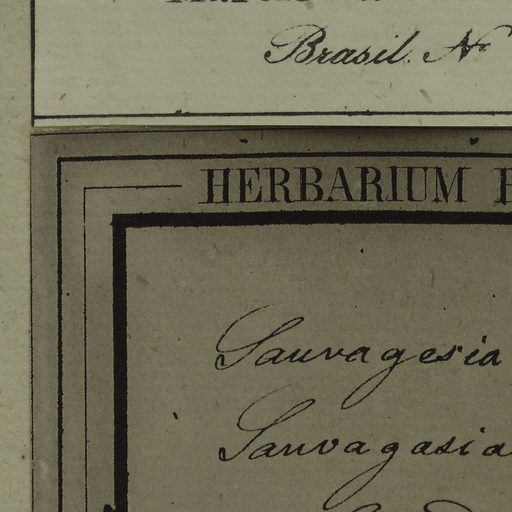 Brasil. No
HERBARIUM
Sauvagesia
Sauvagasia